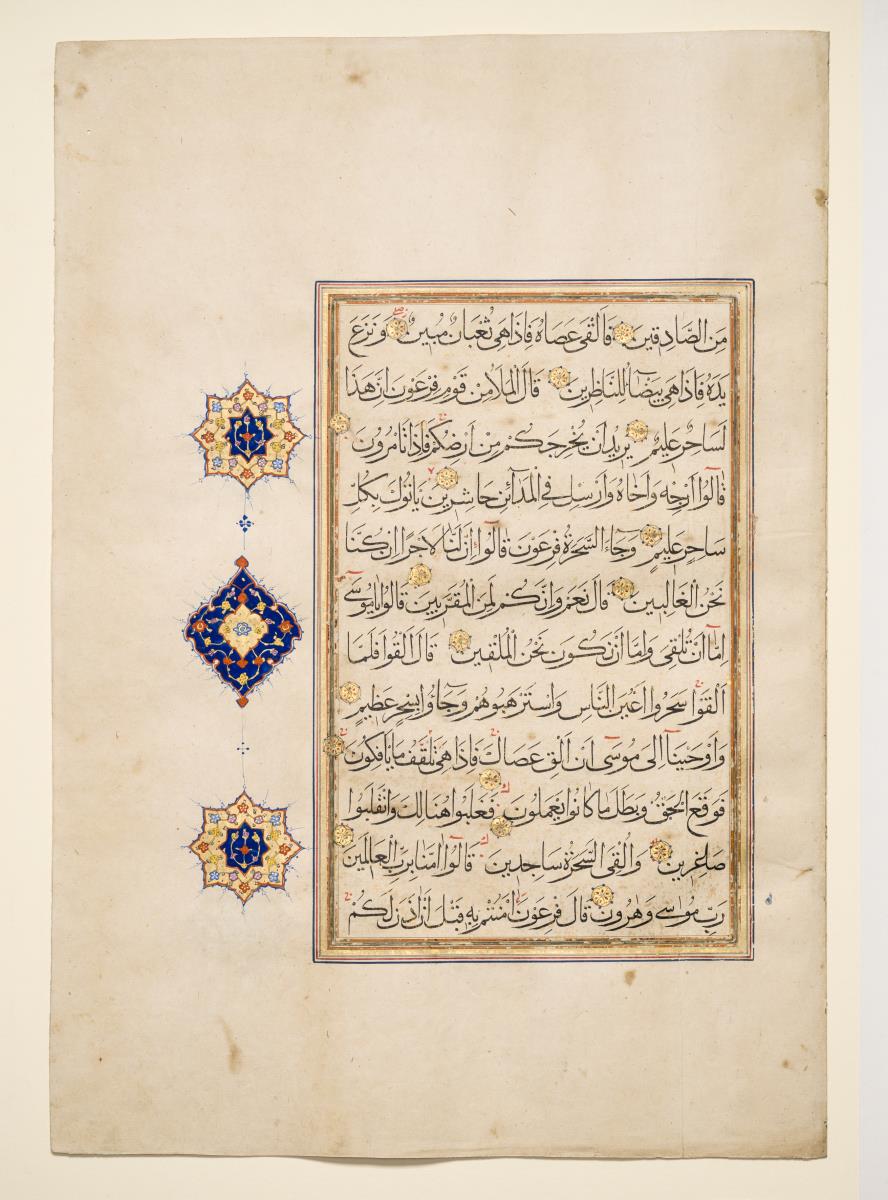 مِنَ الصَّادِقِينَ فَاَلْقَى عَصَاهُ فَاِذَا هِيَ ثُعْبَانٌ مُبِينٌ وَنَزَعَ
يَدَهُ فَاِذَا هِيَ بَيْضَاءُ لِلنَّاظِرِينَ قَالَ الْمَلَأُ مِنْ قَوْمِ فِرْعَوْنَ اِنَّ هَذَا
لَسَاحِرٌ عَلِيمٌ يُرِيدُ اَنْ يُخْرِجَكُمْ مِنْ اَرْضِكُمْ فَمَاذَا تَامُرُونَ
قَالُوا اَرْجِهِ وَاَخَاهُ وَاَرْسِلْ فِي الْمَدَائِنِ حَاشِرِينَ يَاتُوكَ بِكُلِّ
سَاحِرٍ عَلِيمٍ وَجَاءَ السَّحَرَةُ فِرْعَوْنَ قَالُوا اِنَّ لَنَا لَاَجْرًا اِنْ كُنَّا
نَحْنُ الْغَالِبِينَ قَالَ نَعَمْ وَاِنَّكُمْ لَمِنَ الْمُقَرَّبِينَ قَالُوا يَامُوسَى
اِمَّا اَنْ تُلْقِيَ وَاِمَّا اَنْ نَكُونَ نَحْنُ الْمُلْقِينَ قَالَ اَلْقُوا فَلَمَّا
اَلْقَوْا سَحَرُوا اَعْيُنَ النَّاسِ وَاسْتَرْهَبُوهُمْ وَجَاؤُا بِسِحْرٍ عَظِيمٍ
وَاَوْحَيْنَا اِلَى مُوسَى اَنْ اَلْقِ عَصَاكَ فَاِذَا هِيَ تَلْقَفُ مَا يَافِكُونَ
فَوَقَعَ الْحَقُّ وَبَطَلَ مَا كَانُوا يَعْمَلُونَ فَغُلِبُوا هُنَالِكَ وَانْقَلَبُوا
صَاغِرِينَ وَاُلْقِيَ السَّحَرَةُ سَاجِدِينَ قَالُوا اٰمَنَّا بِرَبِّ الْعَالَمِينَ
رَبِّ مُوسَى وَهٰرُونَ قَالَ فِرْعَوْنُ اٰمَنْتُمْ بِهِ قَبْلَ اَنْ اٰذَنَ لَكُمْ